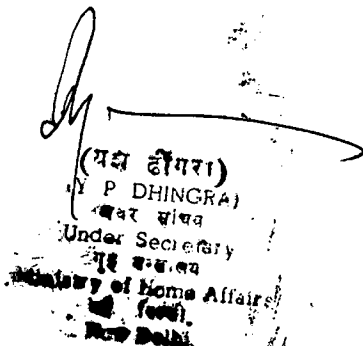 (यश ढींगरा)
(Y P DHINGRA)
अवर सचिव
Under Secretary
गृह मन्त्रालय
Ministry of Home Affairs
नई दिल्ली
New Delhi